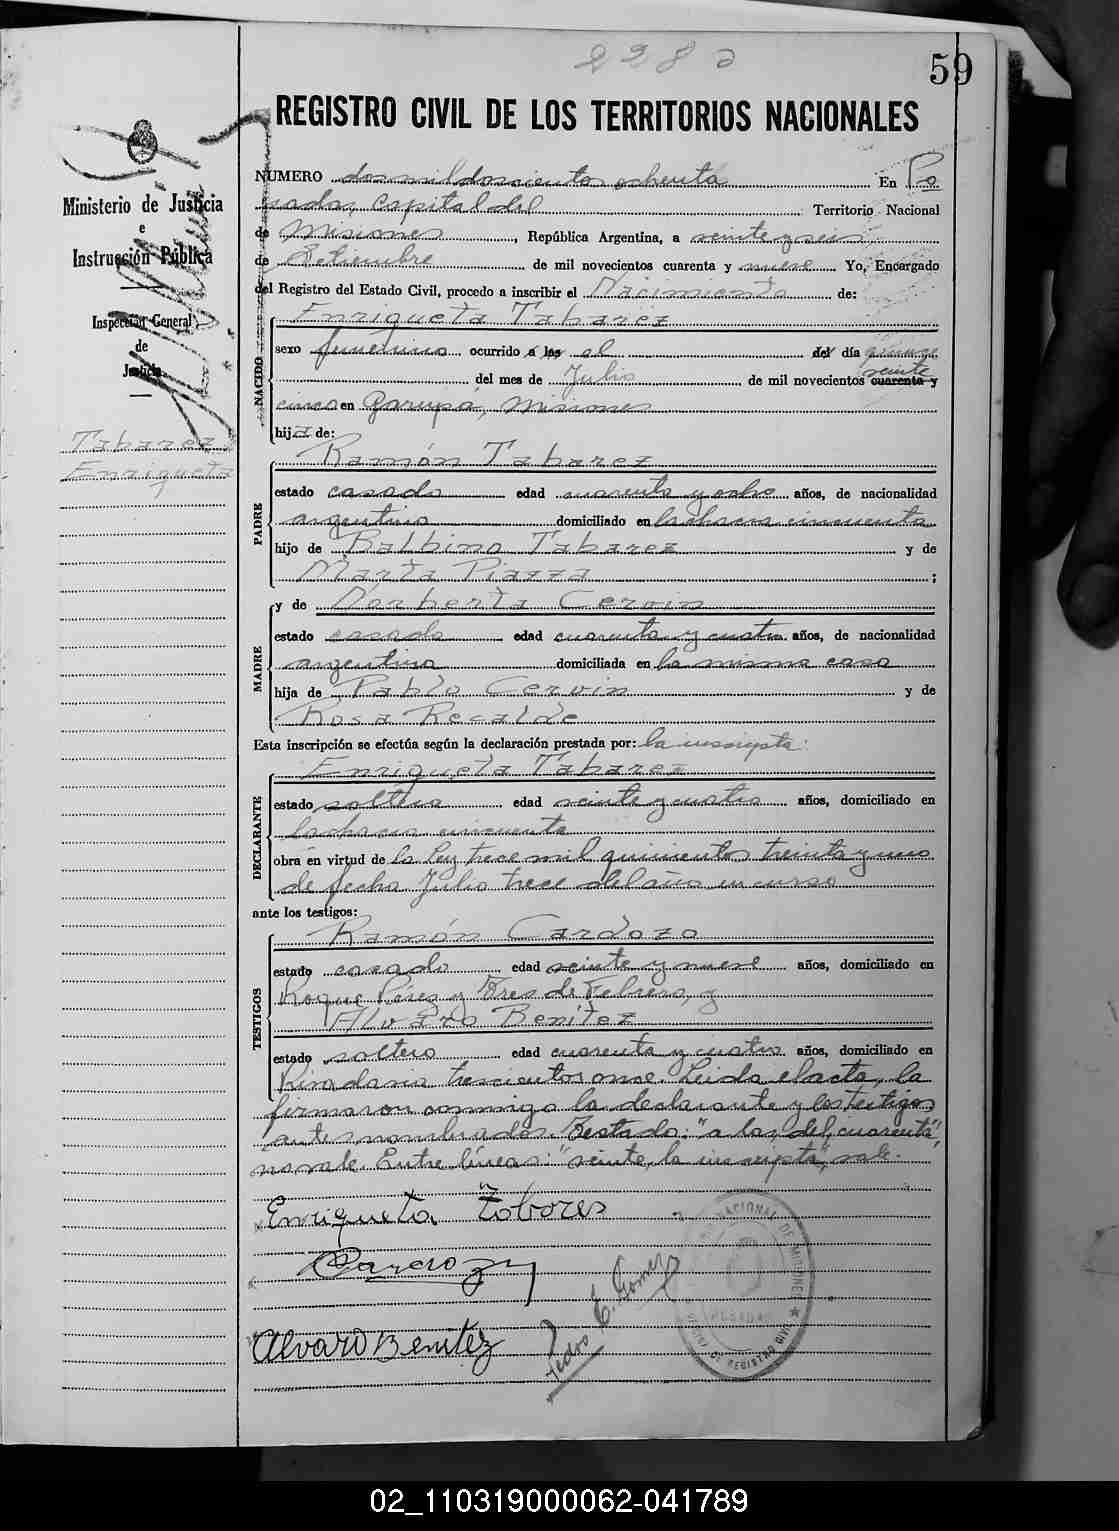 2280
59
REGISTRO CIVIL DE LOS TERRITORIOS NACIONALES
Ministerio de Justicia
e
Instrucción Pública
Inspección General
de
Justicia
Tabarez
Enriqueta
NUMERO dos mil doscientos ochenta En Po
sadas, Capital del Territorio Nacional
de Misiones, República Argentina, a veinte y seis
de Setiembre de mil novecientos cuarenta y nueve Yo, Encargado
del Registro del Estado Civil, procedo a inscribir el Nacimiento de:
NACIDO
Enriqueta Tabarez
sexo femenino ocurrido a las el del día quince
del mes de Julio de mil novecientos cuarenta y veinte
cinco en Garupá, Misiones
hija de:
PADRE
Ramón Tabarez
estado casado edad cuarenta y ocho años, de nacionalidad
argentina domiciliado en la chacra cincuenta
hijo de Balbino Tabarez y de
Marta Piazza ;
MADRE
y de Norberta Cervin
estado casada edad cuarenta y cuatro años, de nacionalidad
argentina domiciliada en la misma casa
hija de Pablo Cervin y de
Rosa Recalde
Esta inscripción se efectúa según la declaración prestada por: la inscripta:
DECLARANTE
Enriqueta Tabarez
estado soltera edad veinte y cuatro años, domiciliado en
la chacra cincuenta
obra en virtud de la Ley trece mil quinientos treinta y uno
de fecha Julio trece del año en curso
ante los testigos:
TESTIGOS
Ramón Cardozo
estado casado edad veinte y nueve años, domiciliado en
Roque Pérez y Tres de Febrero, y
Alvaro Benítez
estado soltero edad cuarenta y cuatro años, domiciliado en
Rivadavia trescientos once. Leida el acta, la
firmaron conmigo la declarante y los testigos
antes nombrados. Testado: "a las, del, cuarenta",
no vale. Entre líneas: "veinte, la inscripta", vale.
Enriqueta Tobores
Cardozo
Alvaro Benítez
Pedro E. Gomez
NACIONAL DE MISIONES
POSADAS
DE REGISTRO CIVIL
02_110319000062-041789